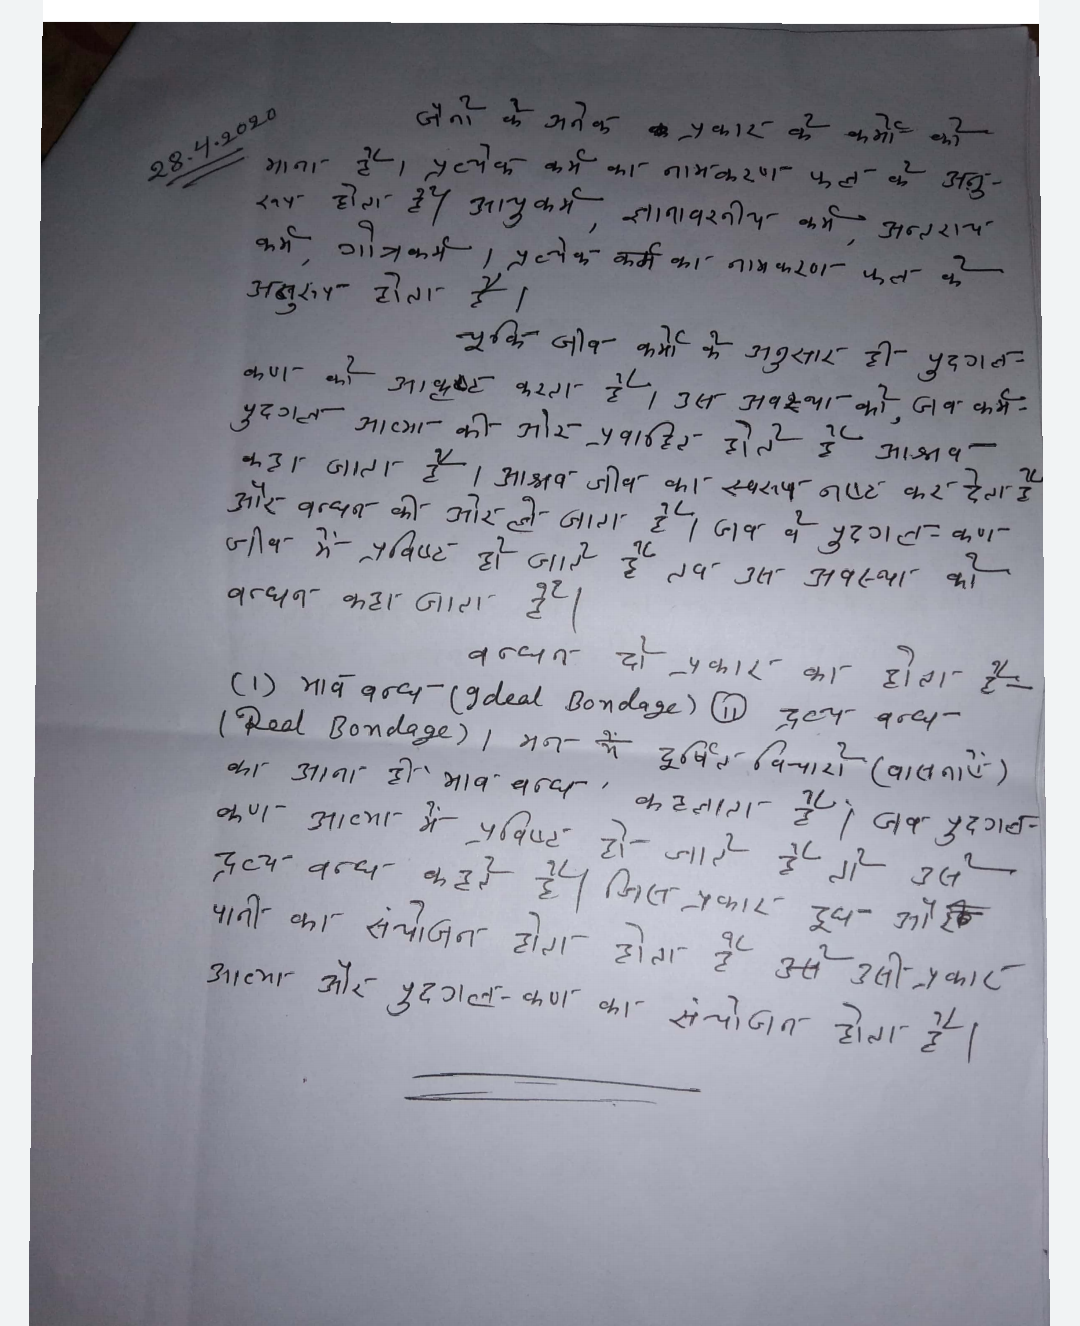 28.4.2020
जैनों के अनेक प्रकार के कर्मों को
माना है। प्रत्येक कर्म का नामकरण फल के अनु-
रूप होता है। आयुकर्म, ज्ञानावरनीय कर्म, अन्तराय
कर्म, गोत्रकर्म। प्रत्येक कर्म का नामकरण फल के
अनुरूप होता है।
चूकि जीव कर्मों के अनुसार ही पुदगल-
कण को आकृष्ट करता है। उस अवस्था को, जब कर्म-
पुदगल आत्मा की ओर प्रवाहित होते हैं आश्रव
कहा जाता है। आश्रव जीव का स्वरूप नष्ट कर देता है
और बन्धन की ओर ले जाता है। जब वे पुदगल-कण
जीव में प्रविष्ट हो जाते हैं तब उस अवस्था को
बन्धन कहा जाता है।
बन्धन दो प्रकार का होता है-
(1) भाव बन्ध-(Ideal Bondage) (ii) द्रव्य बन्ध-
(Real Bondage)। मन में दूषित विचारों (वासनाएँ)
का आना ही भाव बन्ध कहलाता है। जब पुदगल-
कण आत्मा में प्रविष्ट हो जाते हैं तो उसे
द्रव्य बन्ध कहते हैं। जिस प्रकार दूध और
पानी का संयोजन होता होता है उसी प्रकार
आत्मा और पुदगल-कण का संयोजन होता है।